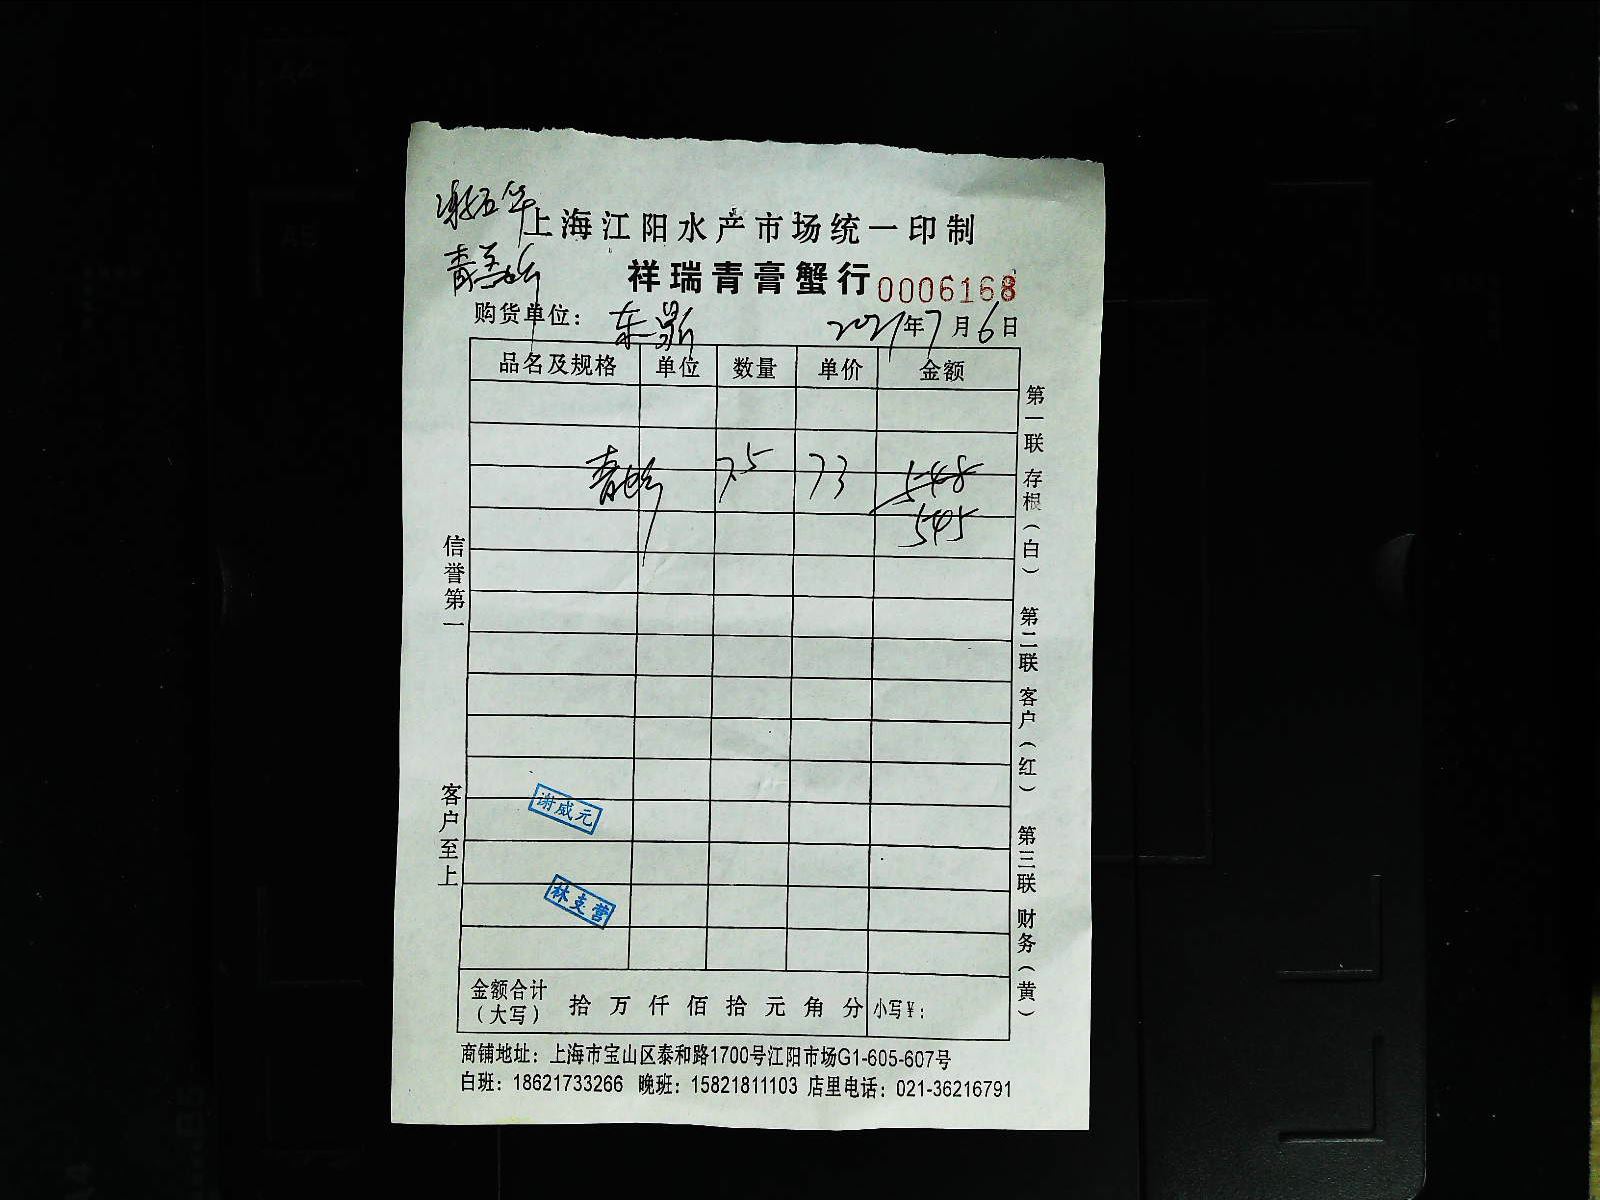 上海江阳水产市场统一印制
祥瑞青膏蟹行 0006168
购货单位： 东 2021年7月6日
品名及规格 单位 数量 单价 金额
青 7.5 73 548
545
信誉第一
客户至上
第一联 存根（白） 第二联 客户（红） 第三联 财务（黄）
谢威元
林支营
金额合计（大写） 拾 万 仟 佰 拾 元 角 分 小写￥：
商铺地址：上海市宝山区泰和路1700号江阳市场G1-605-607号
白班：18621733266 晚班：15821811103 店里电话：021-36216791